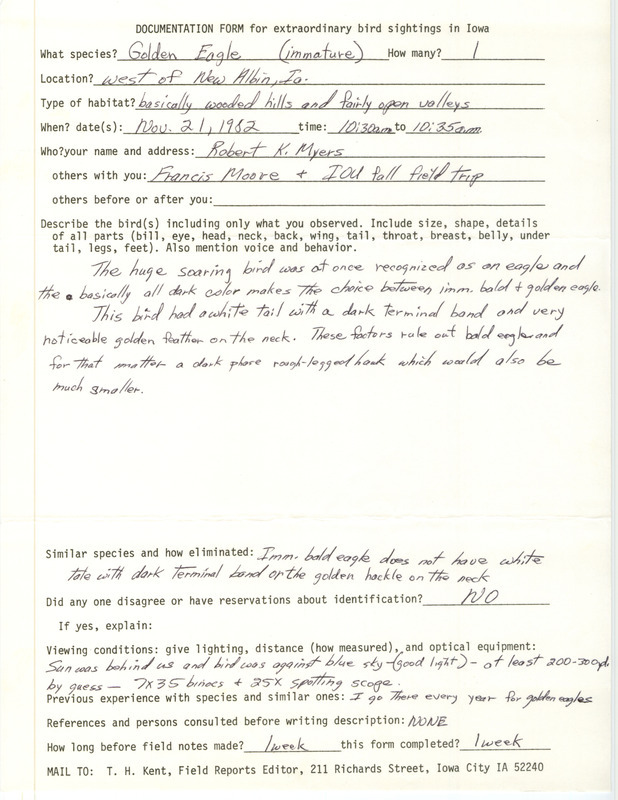 DOCUMENTATION FORM for extraordinary bird sightings in Iowa
What species? Golden Eagle (immature) How many? 1
Location? west of New Albin, Ia.
Type of habitat? basically wooded hills and fairly open valleys
When? date(s): Nov. 21, 1982 time: 10:30am to 10:35am.
Who? your name and address: Robert K. Myers
others with you: Francis Moore + IOU fall field trip
others before or after you:
Describe the bird(s) including only what you observed. Include size, shape, details
of all parts (bill, eye, head, neck, back, wing, tail, throat, breast, belly, under
tail, legs, feet). Also mention voice and behavior.
The huge soaring bird was at once recognized as an eagle and
the basically all dark color makes the choice between imm. bald + golden eagle.
This bird had a white tail with a dark terminal band and very
noticeable golden feather on the neck. These factors rule out bald eagle and
for that matter a dark phase rough-legged hawk which would also be
much smaller.
Similar species and how eliminated: Imm. bald eagle does not have white
tale with dark terminal band or the golden hackle on the neck
Did any one disagree or have reservations about identification? NO
If yes, explain:
Viewing conditions: give lighting, distance (how measured), and optical equipment:
Sun was behind us and bird was against blue sky - (good light) - at least 200-300yd.
by guess — 7x35 binocs + 25X spotting scope.
Previous experience with species and similar ones: I go there every year for golden eagles
References and persons consulted before writing description: NONE
How long before field notes made? 1 week this form completed? 1 week
MAIL TO: T. H. Kent, Field Reports Editor, 211 Richards Street, Iowa City IA 52240